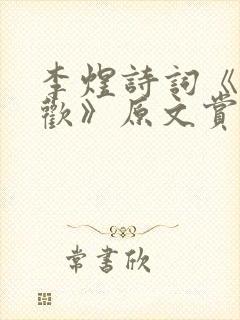 李煜詩詞《
歡》原文賞
常書欣